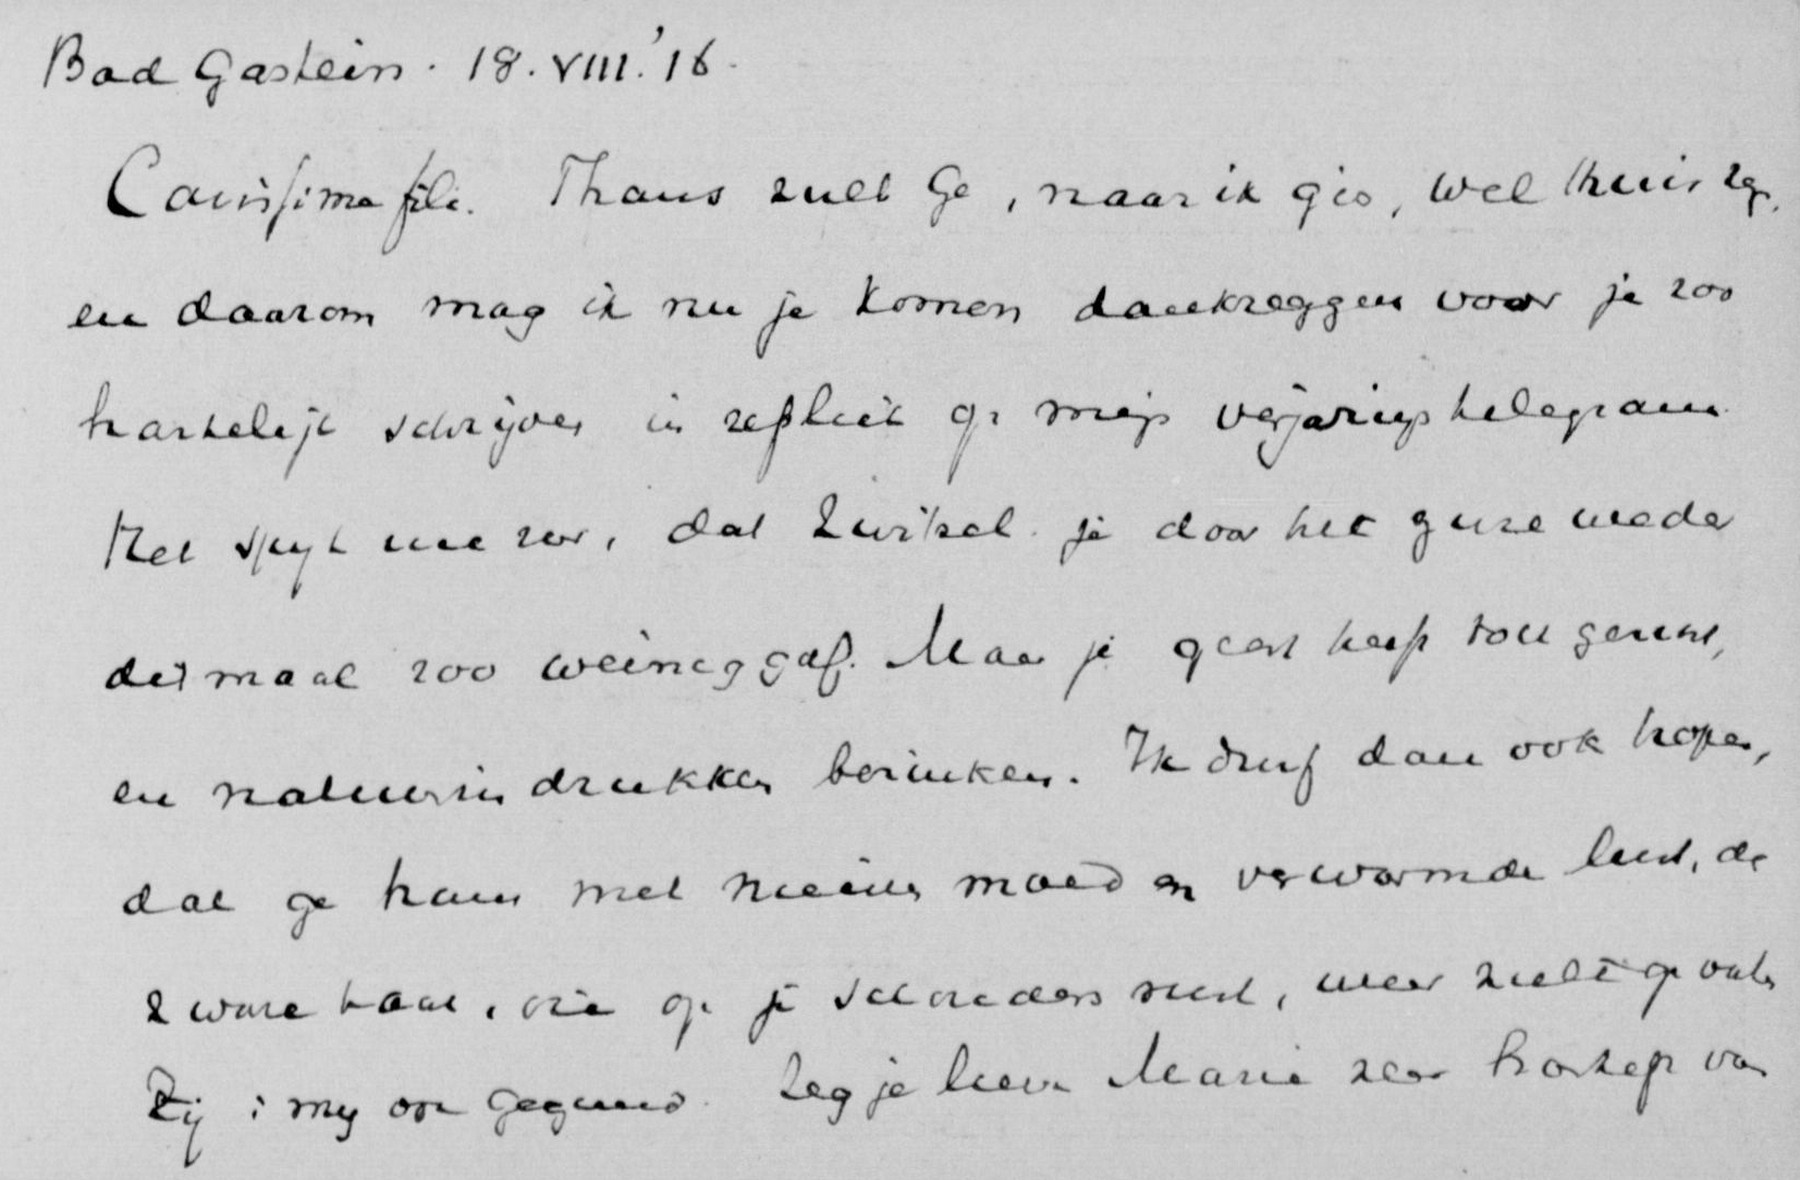 Bad Gastein. 18. VIII.'16.
Carissime fili. Thans zult Ge, naar ik gis, wel thuis zijn,
en daarom mag ik nu je komen dankzeggen voor je zoo
hartelijk schrijven in repliek op mijn verjaringstelegram
Het spijt me zeer, dat Zwitsel. je door het gure weder
ditmaal zoo weinig gaf. Maar je geest heeft toch gerust,
en natuurindrukken verdrukken. Ik durf dan ook hopen,
dat ge thans met nieuwe moed en verwarmde lust, de
zware taak, die op je schouders rust, weer zult opvatten
Zij 't mij ook gegund. Zeg je lieve Marie zeer hartelijk van